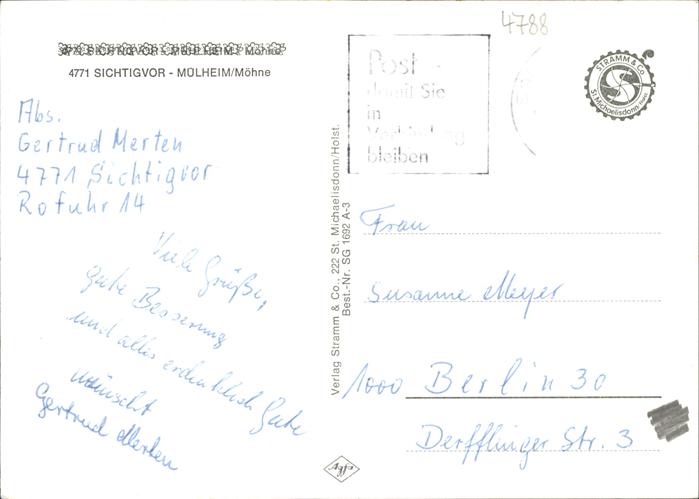 4788
4771 SICHTIGVOR - MÜLHEIM/Möhne
4771 SICHTIGVOR - MÜLHEIM/Möhne
Abs.
Gertrud Merten
4771 Sichtigvor
Rofuhr 14
Viele Grüße,
gute Besserung
und alles erdenklich Gute
wünscht
Gertrud Merten
Verlag Stramm & Co., 222 St. Michaelisdonn/Holst.
Best.-Nr. SG 1692 A-3
Post -
damit Sie
in
Verbindung
bleiben
STRAMM & CO.
St. Michaelisdonn
Frau
Susanne Meyer
1000 Berlin 30
Derfflinger Str. 3
Agfa